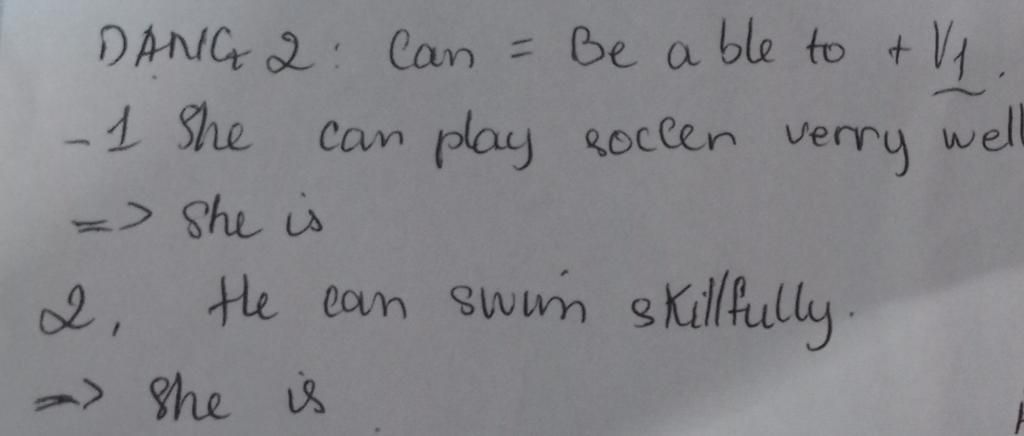 DANG 2: Can = Be able to + V1.
- 1 She can play soccer verry well
=> She is
2, He can swim skillfully.
=> She is